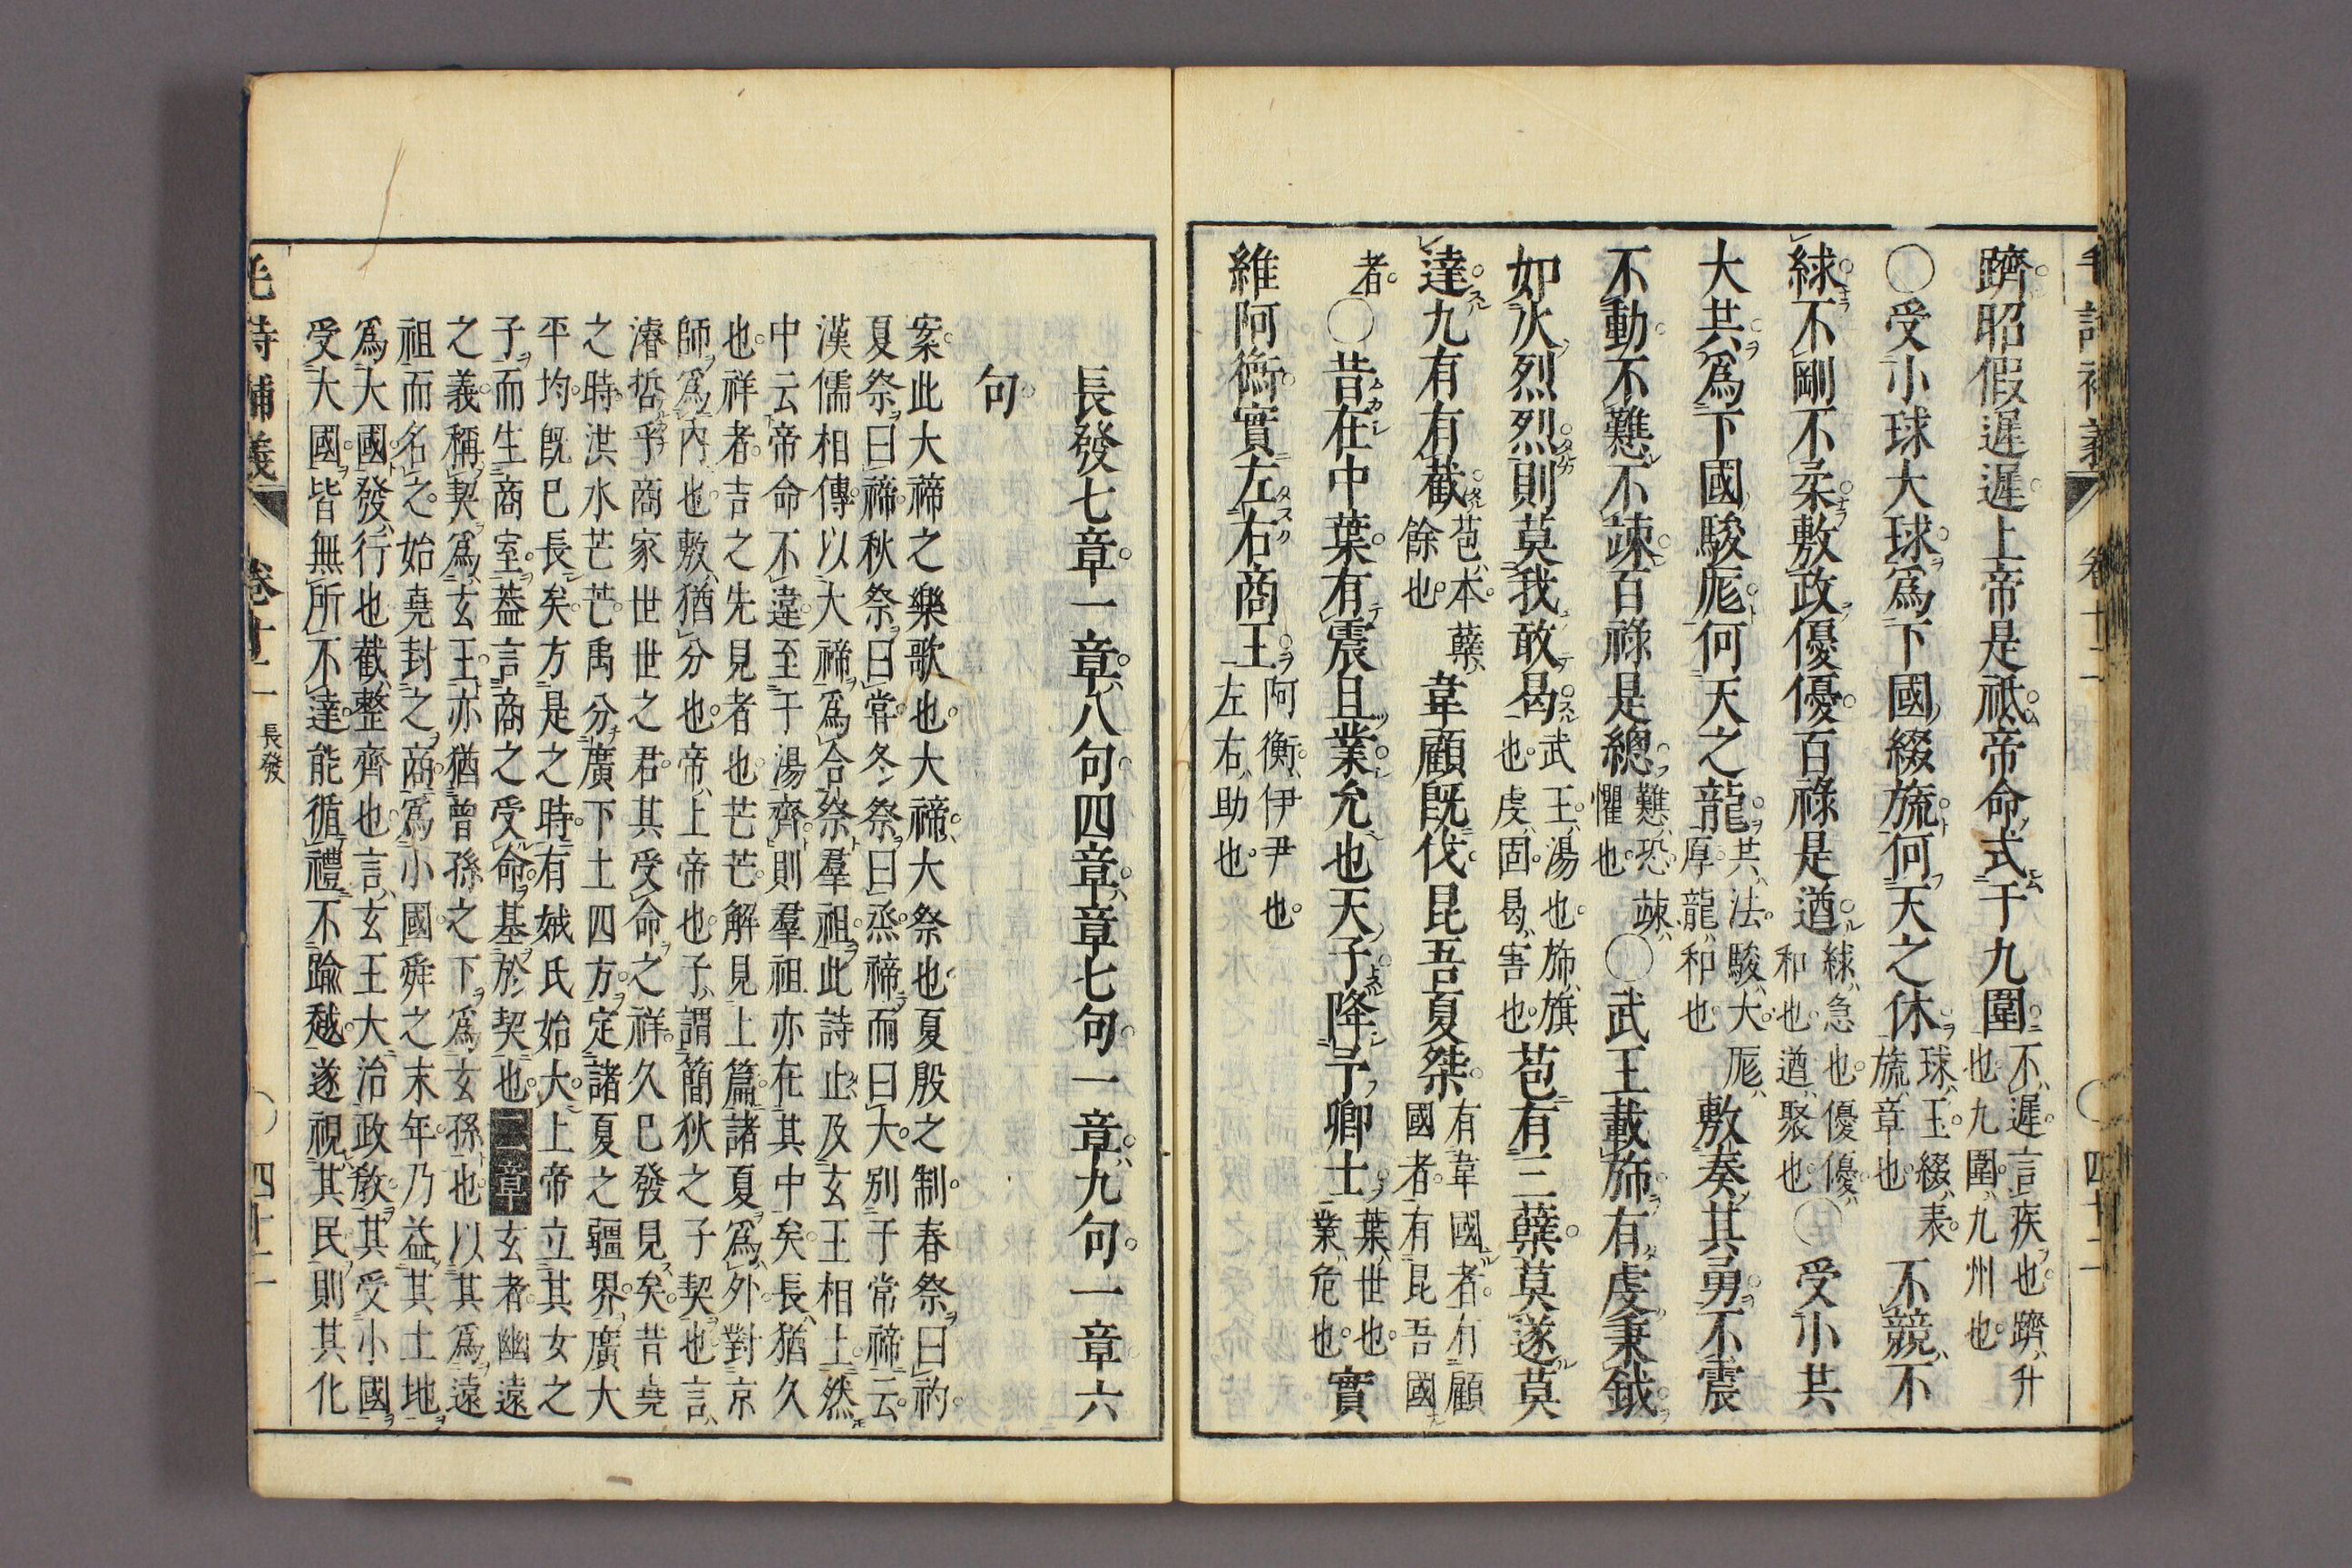 毛詩補義 卷十二 四十二
躋昭假遲遲上帝是祗帝命式于九圍不遲言疾也躋升也九圍九州也
○受小球大球爲下國綴旒何天之休球玉綴表旒章也不競不
絿不剛不柔敷政優優百祿是遒絿急也優優和也遒聚也○受小共
大共爲下國駿厖何天之龍共法駿大厖厚龍和也敷奏其勇不震
不動不戁不竦百祿是總戁恐竦懼也○武王載斾有虔秉鉞
如火烈烈則莫我敢曷武王湯也斾旗也虔固曷害也苞有三蘖莫遂莫
達九有有截苞本蘖餘也韋顧既伐昆吾夏桀有韋國者有顧國者有昆吾國
者○昔在中葉有震且業允也天子降予卿士葉世也業危也實
維阿衡實左右商王阿衡伊尹也左右助也
長發七章一章八句四章章七句一章九句一章六
句
案此大禘之樂歌也大禘大祭也夏殷之制春祭曰礿
夏祭曰禘秋祭曰嘗冬祭曰烝禘而曰大別于常禘云
漢儒相傳以大禘爲合祭羣祖此詩止及玄王相土然
中云帝命不違至于湯齊則羣祖亦在其中矣長猶久
也祥者吉之先見者也芒芒解見上篇諸夏爲外對京
師爲内也敷猶分也帝上帝也子謂簡狄之子契也言
濬哲乎商家世世之君其受命之祥久已發見矣昔堯
之時洪水芒芒禹分廣下土四方定諸夏之疆界廣大
平均既已長矣方是之時有娀氏始大上帝立其女之
子而生商室葢言商之受命基於契也二章玄者幽遠
之義稱契爲玄王亦猶曾孫之下爲玄孫也以其爲遠
祖而名之始堯封之商爲小國舜之末年乃益其土地
爲大國發行也截整齊也言玄王大治政教其受小國
受大國皆無所不達能循禮不踰越遂視其民則其化
毛詩補義 卷十二 長發 四十二